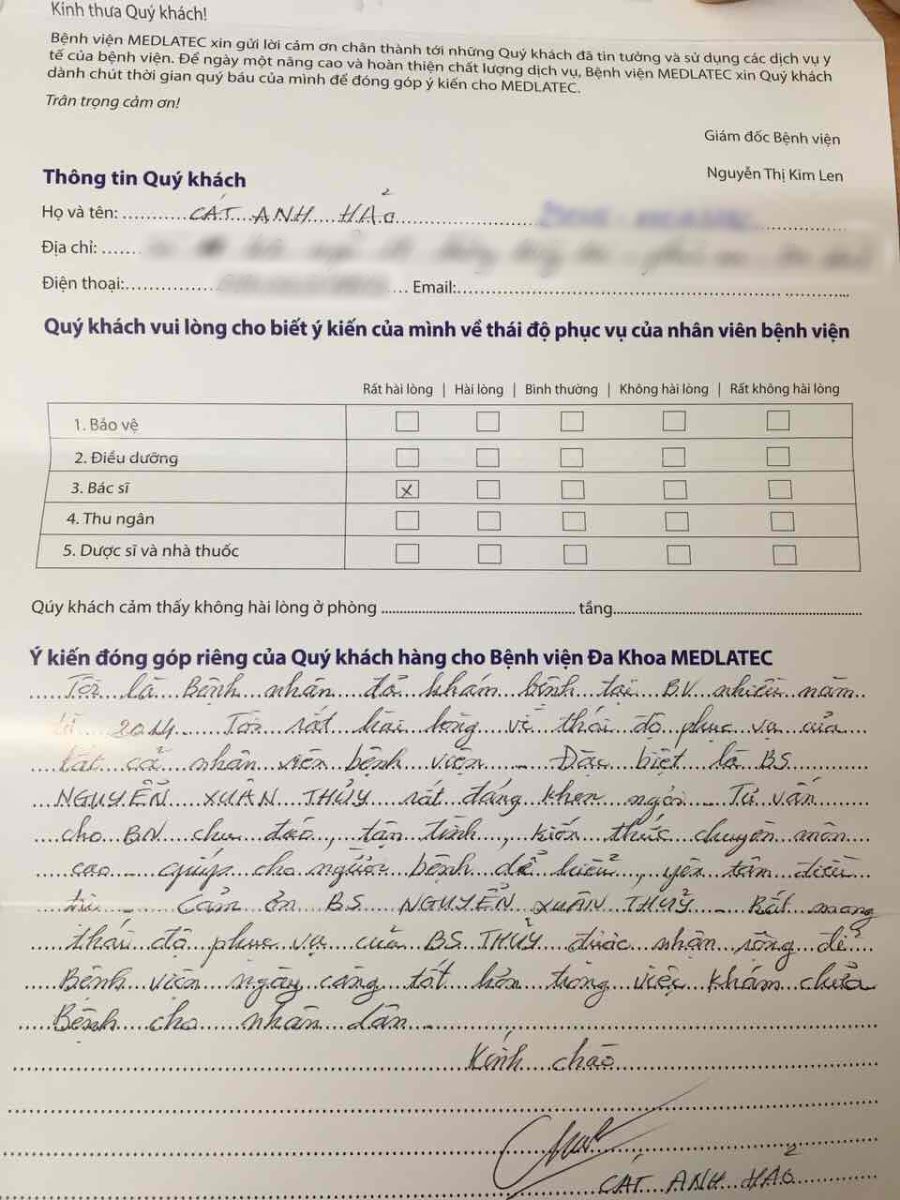 Kính thưa Quý khách!
Bệnh viện MEDLATEC xin gửi lời cảm ơn chân thành tới những Quý khách đã tin tưởng và sử dụng các dịch vụ y
tế của bệnh viện. Để ngày một nâng cao và hoàn thiện chất lượng dịch vụ, Bệnh viện MEDLATEC xin Quý khách
dành chút thời gian quý báu của mình để đóng góp ý kiến cho MEDLATEC.
Trân trọng cảm ơn!
Giám đốc Bệnh viện
Nguyễn Thị Kim Len
Thông tin Quý khách
Họ và tên: CÁT ANH HẢO
Địa chỉ:
Điện thoại: Email:
Quý khách vui lòng cho biết ý kiến của mình về thái độ phục vụ của nhân viên bệnh viện
Rất hài lòng | Hài lòng | Bình thường | Không hài lòng | Rất không hài lòng
1. Bảo vệ
2. Điều dưỡng
3. Bác sĩ X
4. Thu ngân
5. Dược sĩ và nhà thuốc
Qúy khách cảm thấy không hài lòng ở phòng tầng
Ý kiến đóng góp riêng của Quý khách hàng cho Bệnh viện Đa Khoa MEDLATEC
Tôi là Bệnh nhân đã khám bệnh tại B.V nhiều năm
từ 2014 Tôi rất hài lòng về thái độ phục vụ của
tất cả nhân viên bệnh viện - Đặc biệt là BS
NGUYỄN XUÂN THỦY rất đáng khen ngợi - Tư vấn
cho BN chu đáo, tận tình, kiến thức chuyên môn
cao - giúp cho người bệnh dể hiểu, yên tâm điều
trị - Cảm ơn BS NGUYỄN XUÂN THỦY - Rất mong
thái độ phục vụ của BS THỦY được nhận rộng để
Bệnh viện ngày càng tốt hơn trong việc khám chửa
Bệnh cho nhân dân -
Kính chào
CÁT ANH HẢO